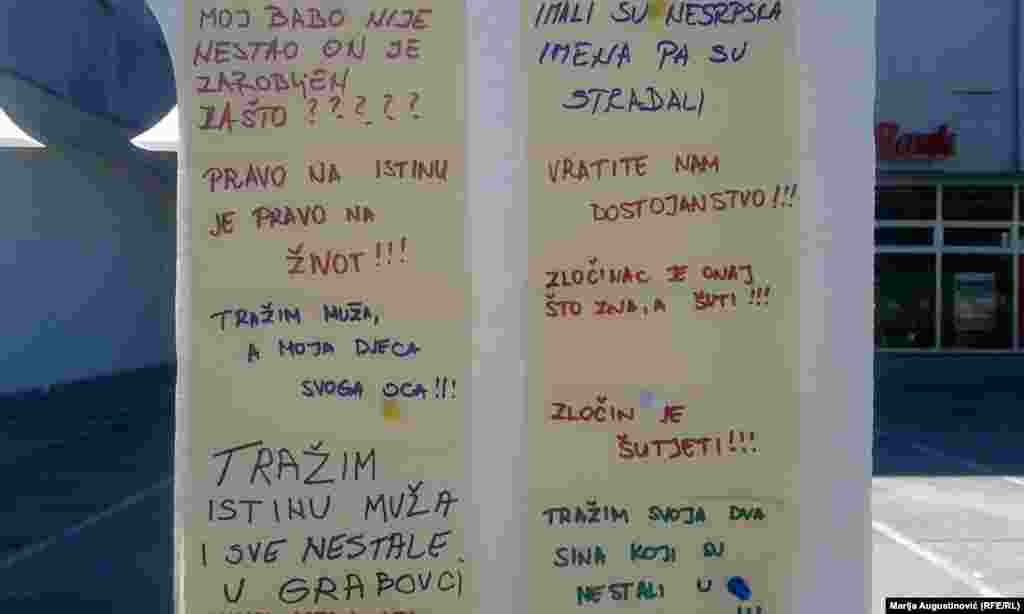 MOJ BABO NIJE
NESTAO ON JE
ZAROBLJEN
ZAŠTO ?????
PRAVO NA ISTINU
JE PRAVO NA
ŽIVOT!!!
TRAŽIM MUŽA,
A MOJA DJECA
SVOGA OCA!!!
TRAŽIM
ISTINU MUŽA
I SVE NESTALE
U GRABOVCI
IMALI SU NESRPSKA
IMENA PA SU
STRADALI
VRATITE NAM
DOSTOJANSTVO!!!
ZLOČINAC JE ONAJ
ŠTO ZNA, A ŠUTI!!!
ZLOČIN JE
ŠUTJETI!!!
TRAŽIM SVOJA DVA
SINA KOJI SU
NESTALI U
!!!
Bank
Marija Augustinović (RFE/RL)